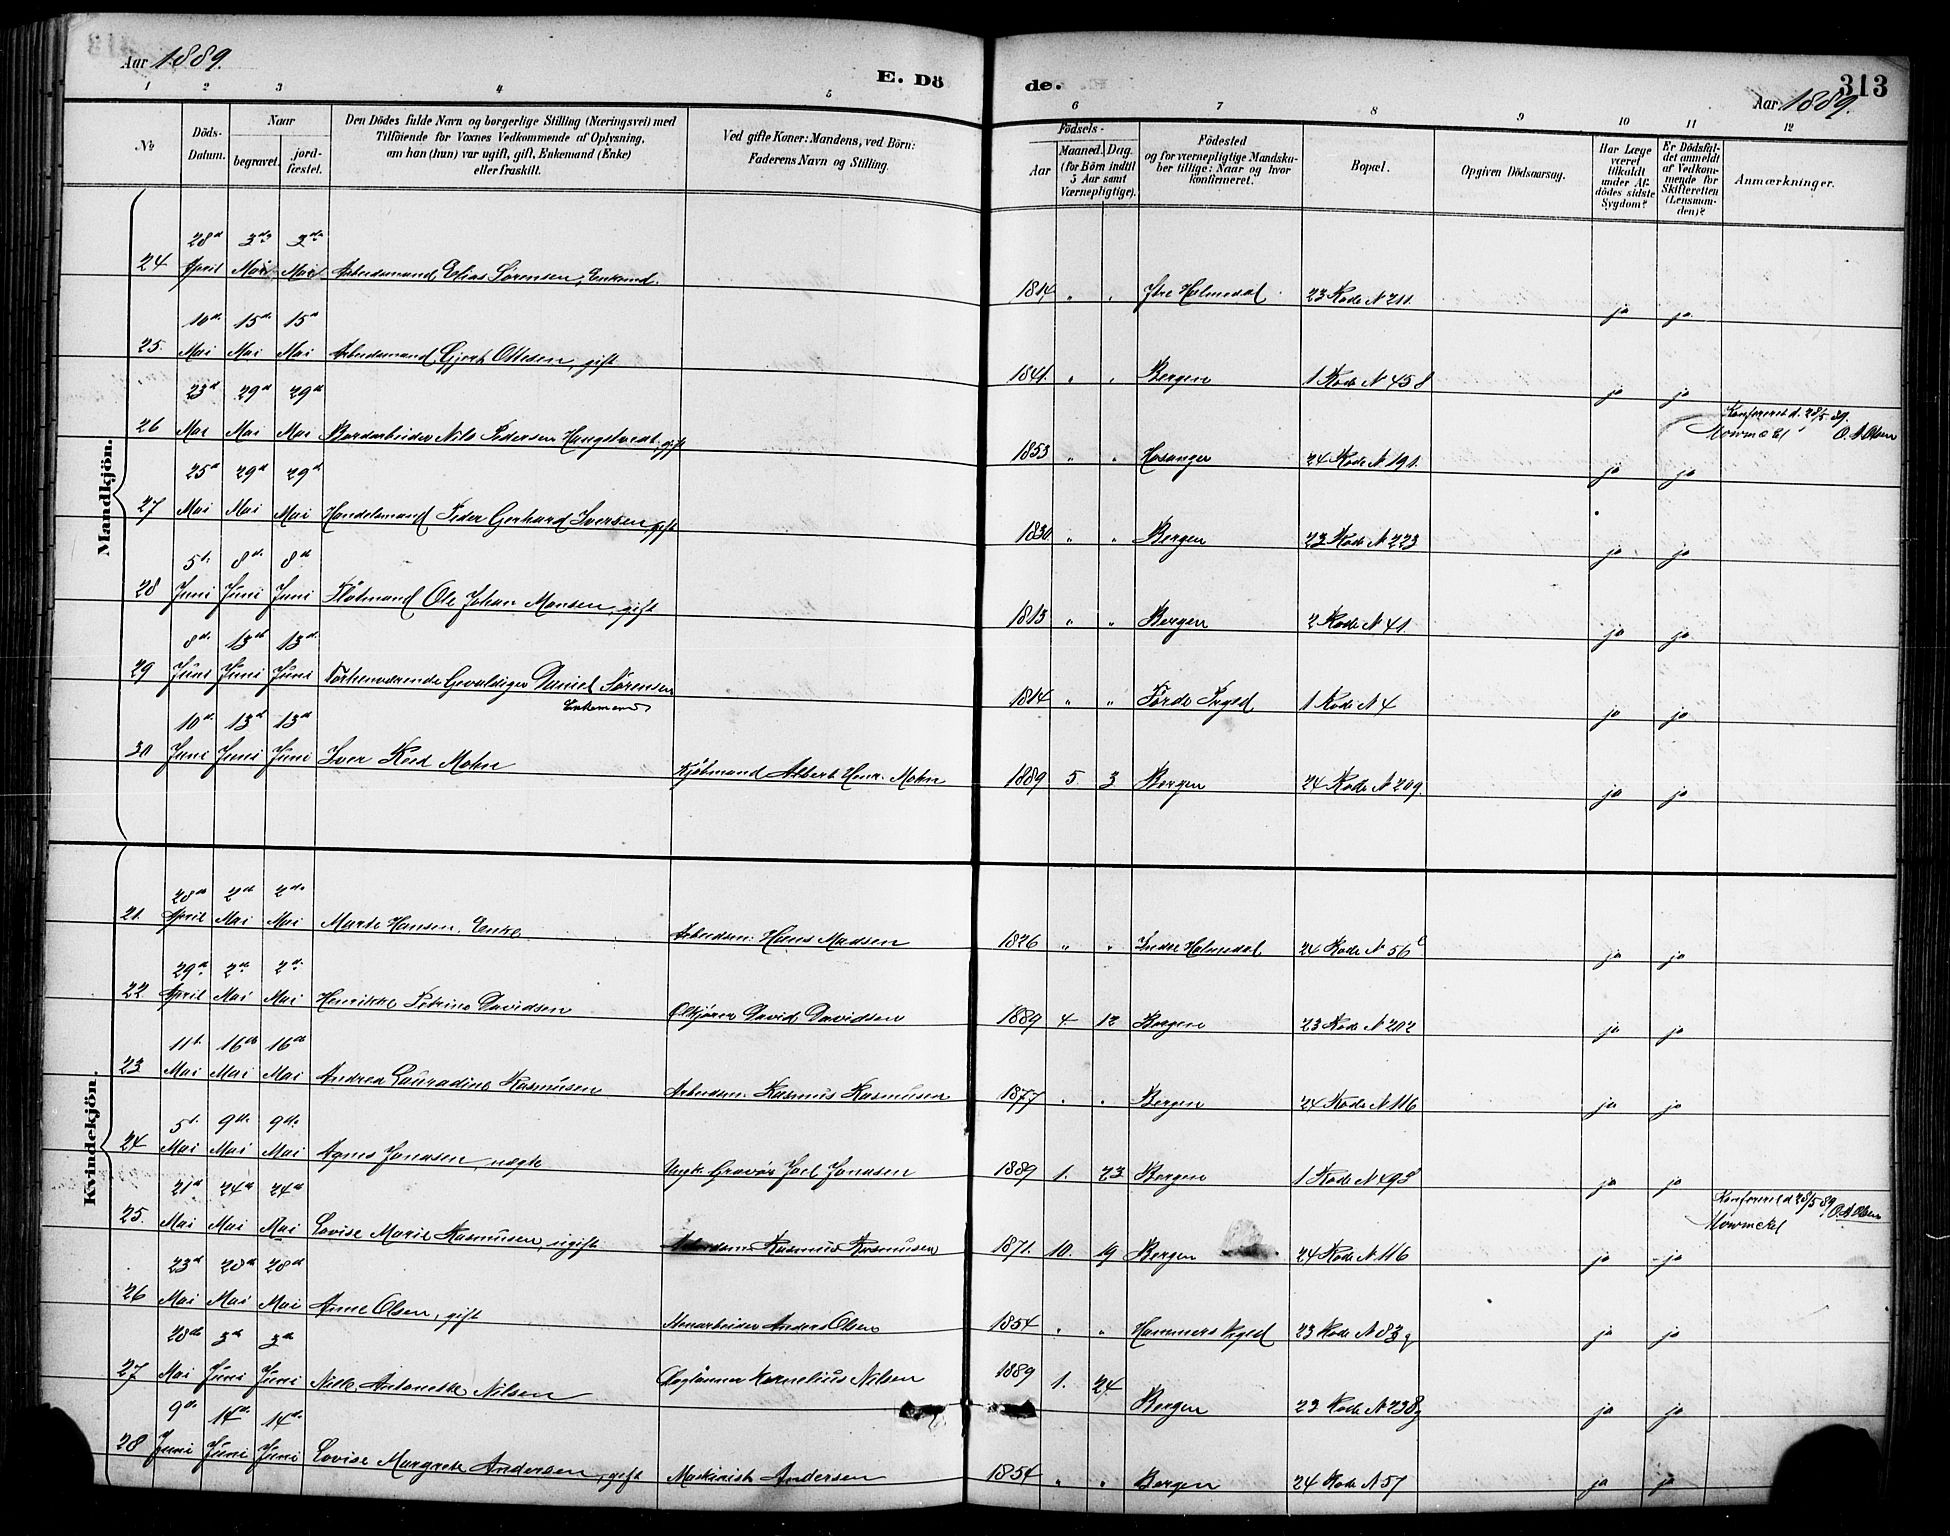 Aar 1889.
E. Dö de.
313
Aar 1889.
1 2 3 4 5 6 7 8 9 10 11 12
№
Döds-Datum.
Naar
begravet.
jord-fæstet.
Den Dödes fulde Navn og borgerlige Stilling (Næringsvei) med
Tilföiende for Voxnes Vedkommende af Oplysning,
om han (hun) var ugift, gift, Enkemand (Enke)
eller fraskilt.
Ved gifte Koner: Mandens, ved Börn:
Faderens Navn og Stilling.
Födsels-
Aar
Maaned. Dag.
(for Börn indtil
5 Aar samt
Værnepligtige).
Födested
og for værnepligtige Mandsku-
ber tillige: Naar og hvor
konfirmeret.
Bopæl.
Opgiven Dödsaarsag.
Har Læge
været
tilkaldt
under Af-
dödes sidste
Sygdom?
Er Dödsfal-
det anmeldt
af Vedkom-
mende for
Skifteretten
(Lensman-
den)?
Anmærkninger.
Mandkjön.
24 28d April 3die Mai 3die Mai Arbeidsmand Elias Sørensen, Enkemd. 1814 " " Ytre Holmedal 23 Rode N 211 ja ja
25. 10d Mai 15d Mai 15d Mai Arbeidsmand Gjert Ottesen, gift 1841. " " Bergen 1 Rode N 458 ja ja
26 23d Mai 29d Mai 29d Mai Bordarbeider Nils Pedersen Haugstvedt, gift 1853 " " Hosanger 24 Rode N 191. ja ja Konfereret d. 28/5 89. Mowinckel O. A Olsen
27 25d Mai 29d Mai 29d Mai Handelsmand Peder Gerhard Iversen, gift 1830 " " Bergen 23 Rode N 223 ja ja
28 5t Juni 8d Juni 8d Juni Flåtmand Ole Johan Monsen, gift 1813 " " Bergen 2 Rode N 41. ja ja
29 8d Juni 13d Juni 13d Juni Forhenværende Gevaldiger Daniel Sørensen
Enkemand 1814 " " Førde Prgjd 1 Rode N 4 ja ja
30 10d Juni 13d Juni 13d Juni Iver Reed Mohn Kjøbmand Albert Henr. Mohn 1889 5. 3 Bergen 24 Rode N 209. ja ja
Kvindekjön.
21. 28d April 2d Mai 2d Mai Marte Hansen. Enke Arbeidsm: Hans Madsen 1826 " " Indre Holmedal 24 Rode N 56 ja ja
22. 29d April 2d Mai 2d Mai Henrikke Petrine Davidsen David Davidsen 1889 4. 12 Bergen 23 Rode N 202 ja ja
23 11t Mai 16d Mai 16d Mai Andrea Lauradine Rasmusen Arbeidsm. Rasmus Rasmusen 1877 " " Bergen 24 Rode N 116 ja ja
24 5t Mai 9de Mai 9de Mai Agnes Jonasen, uægte Ungk. Gravør Joel Jonasen 1889 1. 23 Bergen 1 Rode N 49 ja ja
25. 21d Mai 24d Mai 24d Mai Lovise Marie Rasmusen, ugift Arbeidsm Rasmus Rasmusen 1871. 10. 19 Bergen 24 Rode N 116 ja ja Konfereret d 28/5 89. Mowinckel O. A Olsen
26 23d Mai 28d Mai 28d Mai Anne Olsen, gift Stenarbeider Anders Olsen 1854 " " Hammers Prgjd 23 Rode N 83 ja ja
27 28de Mai 3d Juni 3d Juni Antonette Nilsen Daglønner Kornelius Nilsen 1889 1. 24 Bergen 23 Rode N 238 ja ja
28 9de Juni 14de Juni 14de Juni Lovise Margrete Andersen, gift Maskinist Andersen 1854 " " Bergen 24 Rode N 57 ja ja